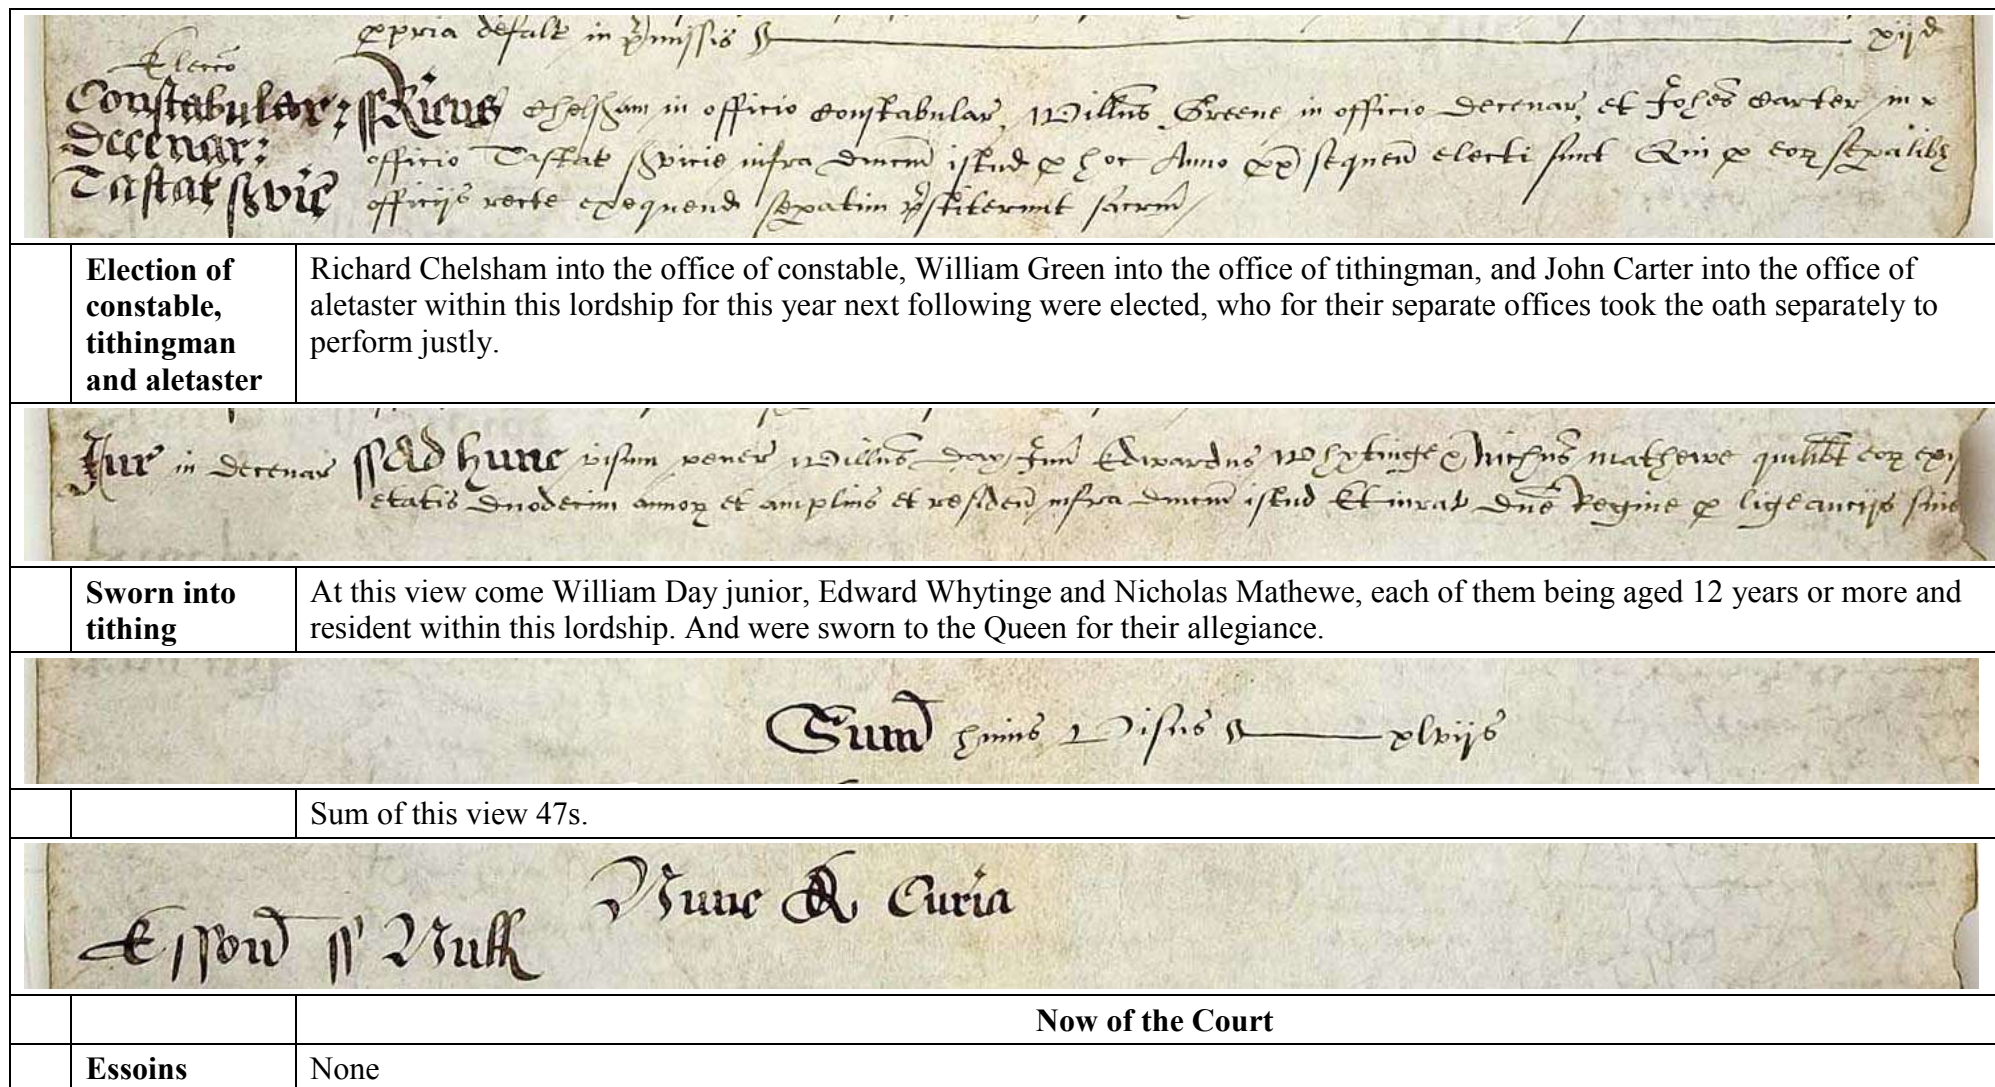 ppria defalt in pmissis xijd
Eleccō
Constabular:
Decenar:
Tastat svic
Ricus Chelsham in officio constabular, Willus Greene in officio decenar, et Johes Carter in
officio Tastat svicie infra dmcm istud p hoc Anno px sequen electi sunt Qui p eor sepalibz
officijs recte exequend sepatim pstiterunt sacrm
Election of
constable,
tithingman
and aletaster
Richard Chelsham into the office of constable, William Green into the office of tithingman, and John Carter into the office of
aletaster within this lordship for this year next following were elected, who for their separate offices took the oath separately to
perform justly.
Jur in decenar
Ad hunc visum vener Willus Day Jun Edwardus Whytinge Nichus Mathewe quilibt eor
etatis duodecim annor et amplius et residen infra dmcm istud Et jurat dne Regine p ligeancijs suis
Sworn into
tithing
At this view come William Day junior, Edward Whytinge and Nicholas Mathewe, each of them being aged 12 years or more and
resident within this lordship. And were sworn to the Queen for their allegiance.
Sum huius Visus xlvijs
Sum of this view 47s.
Nunc de Curia
Esson Null
Now of the Court
Essoins
None